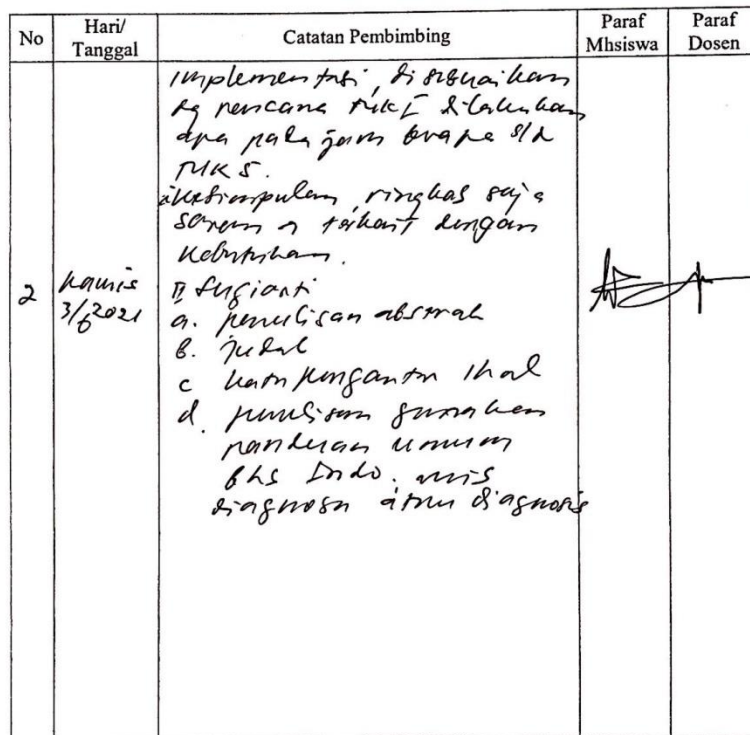 No
Hari/
Tanggal
Catatan Pembimbing
Paraf
Mhsiswa
Paraf
Dosen
implementasi, disesuaikan
dg rencana dilakukan
apa pada jam brapa s/d
kesimpulan, ringkas saja
saran terkait dengan
kebutuhan.
2
Kamis
3/6 2021
Sugianti
a. penulisan abstrak
b. judul
c kata pengantar 1 hal
d. penulisan gunakan
panduan umum
bhs Indo. mis
diagnosa atau diagnosis